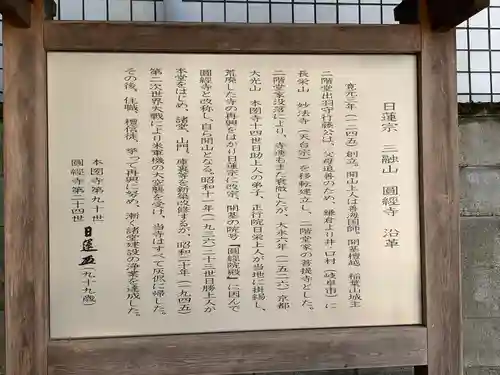 日蓮宗 三融山 圓經寺 沿革
寛元三年(一二四五)創立。開山上人は善海国師、開基檀越 稲葉山城主
二階堂出羽守行藤公は、父母追善のため、鎌倉より井ノ口村(岐阜市)に
長栄山 妙法寺(天台宗)を移転建立し、二階堂家の菩提寺とした。
二階堂家没落により、寺運もまた衰微したが、大永六年(一五二六)京都
大光山 本圀寺十四世日助上人の弟子、正行院日栄上人が当地に掛錫し、
荒廃した寺の再興をはかり日蓮宗に改宗、開基の院号『圓經院殿』に因んで
圓經寺と改称し、自ら開山となる。昭和十一年(一九三六)二十三世日勝上人が
本堂をはじめ、諸堂、山門、庫裏等を新築改修するが、昭和二十年(一九四五)
第二次世界大戦により米軍機の大空襲を受け、当寺はすべて灰燼に帰した。
その後、住職、檀信徒、挙って再興に努め、漸く諸堂建設の浄業を達成した。
本圀寺第九十世
圓經寺第二十四世
日蓮
(九十九歳)